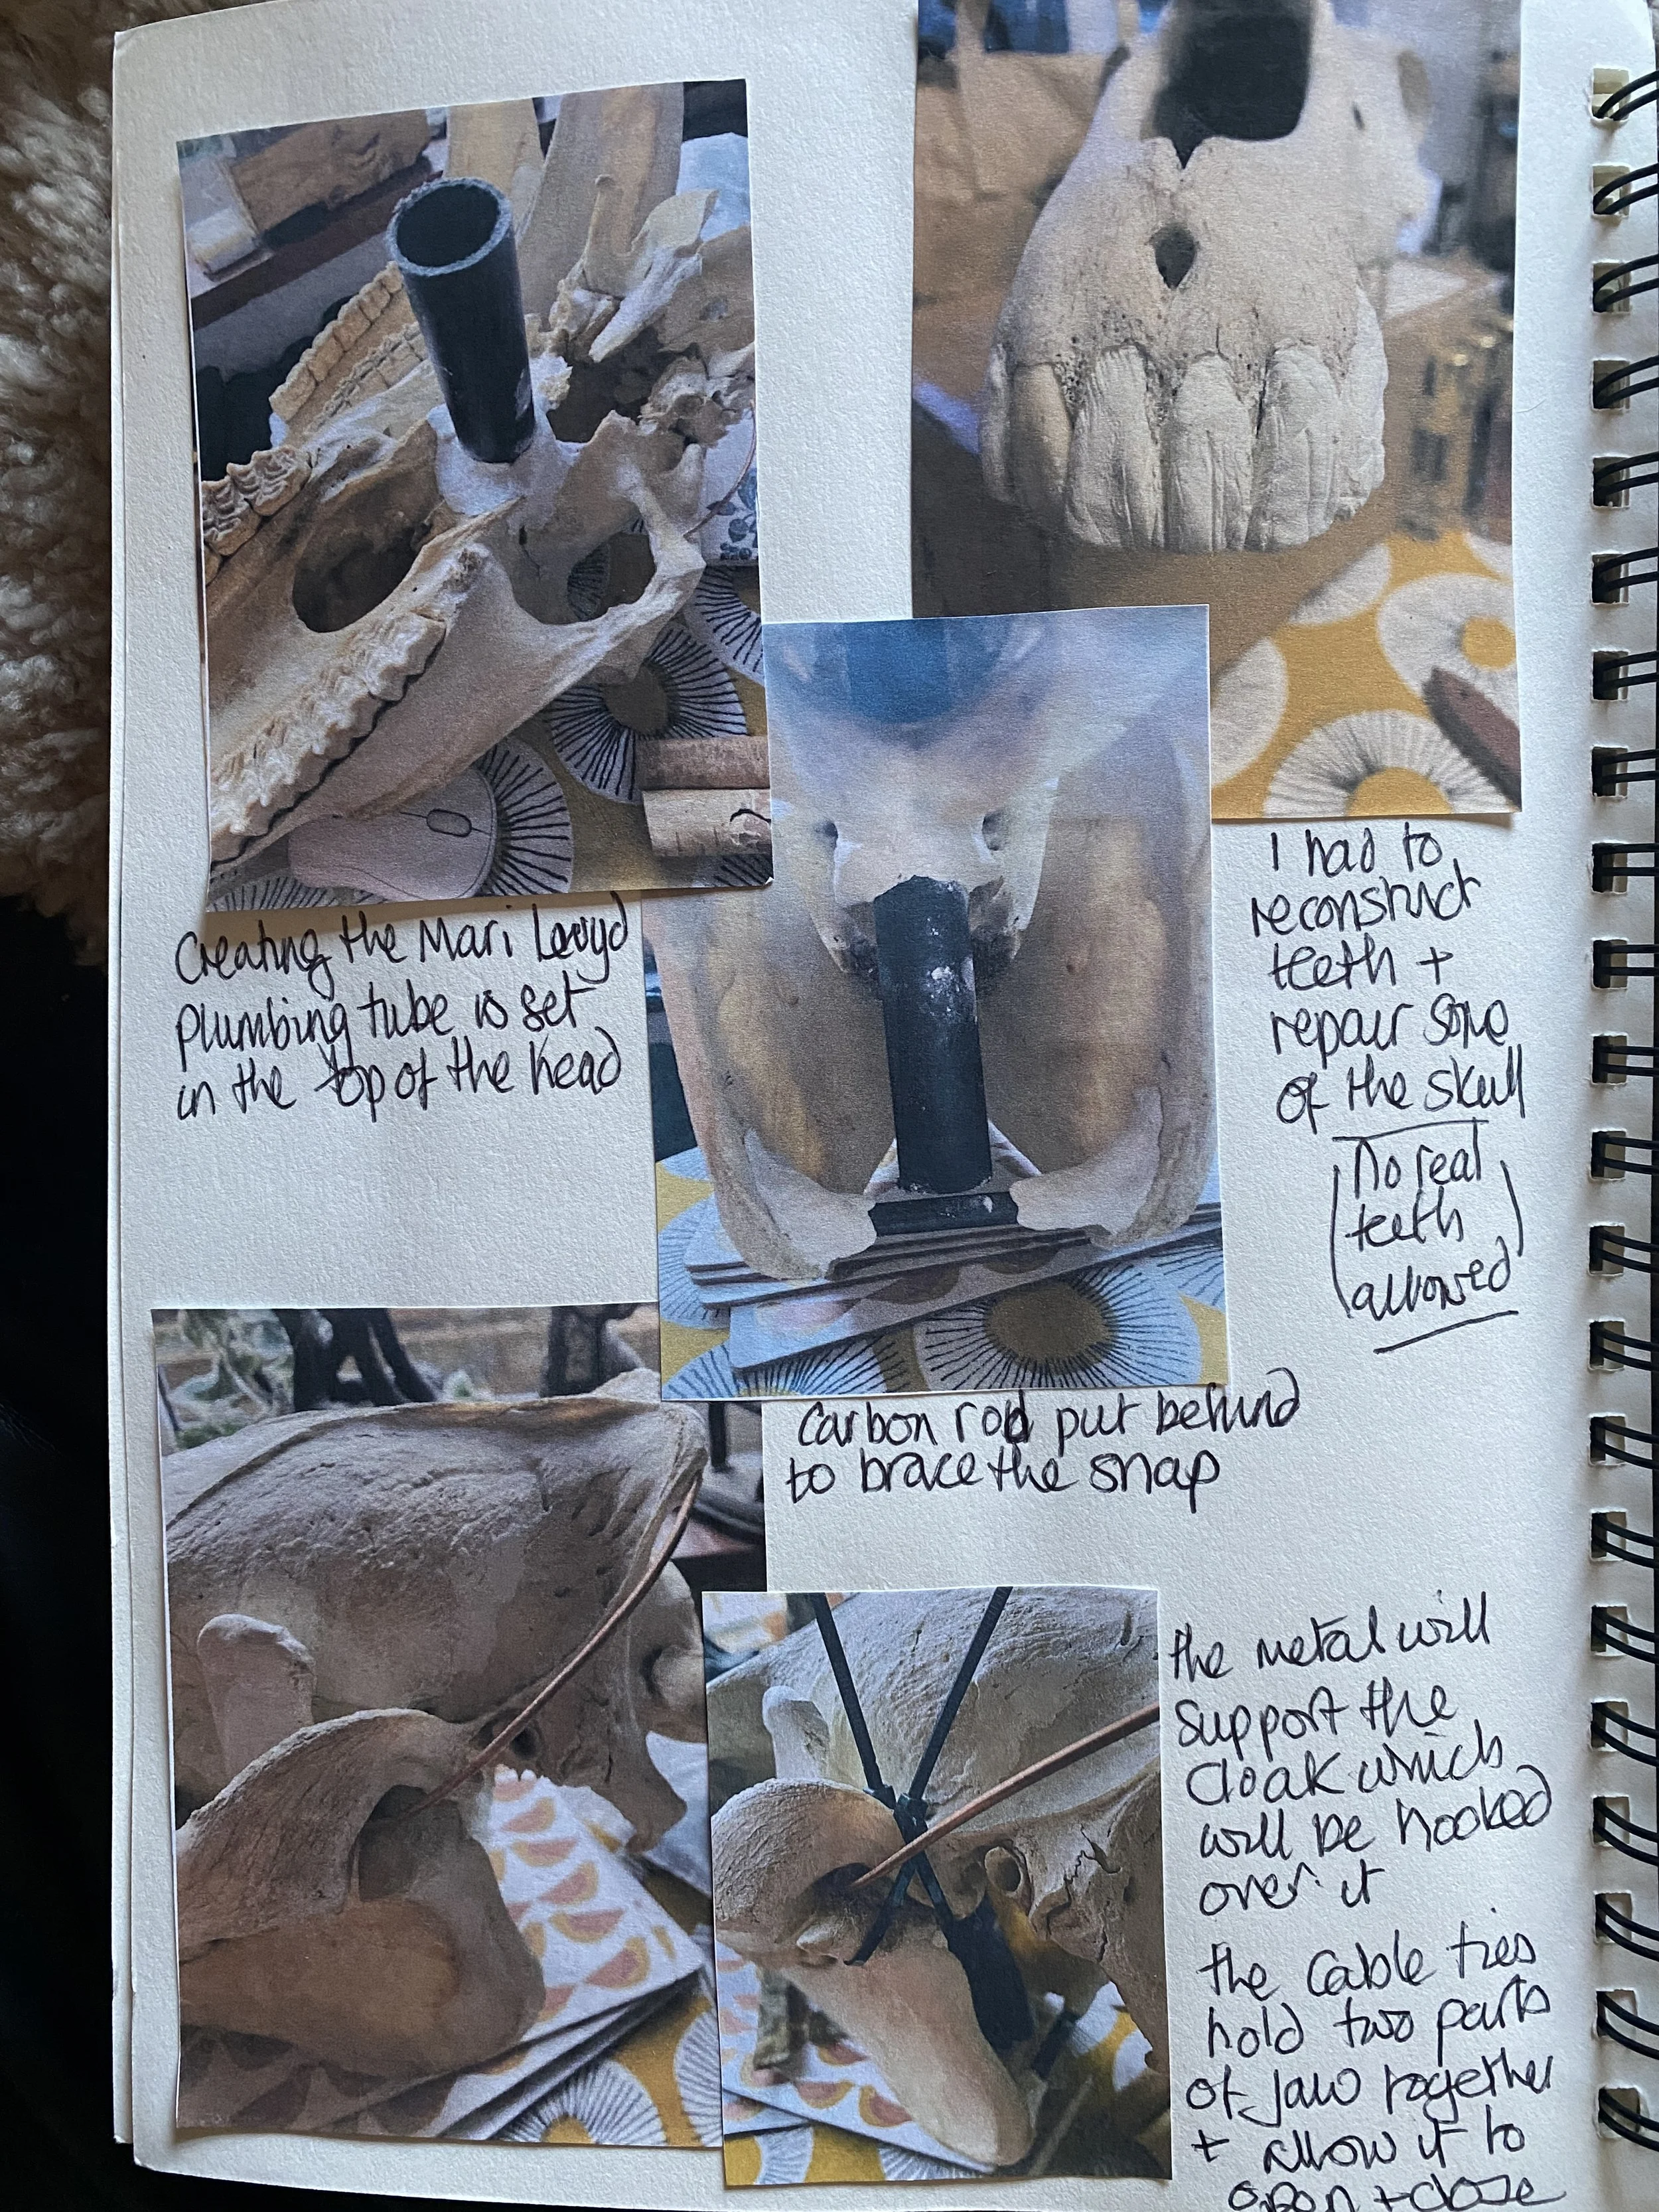 Creating the Mari Lwyd
plumbing tube is set
in the top of the head
I had to
reconstruct
teeth +
repair some
of the skull
(no real
teeth
allowed)
Carbon rod put behind
to brace the snap
the metal will
support the
cloak which
will be hooked
over it
the cable ties
hold two parts
of jaw together
+ allow it to
open + close